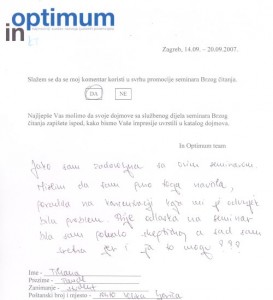 in optimum
Zagreb, 14.09. – 20.09.2007.
Slažem se da se moj komentar koristi u svrhu promocije seminara Brzog čitanja.
DA NE
Najljepše Vas molimo da svoje dojmove sa službenog dijela seminara Brzog
čitanja zapišete ispod, kako bismo Vaše impresije uvrstili u katalog dojmova.
In Optimum team
Jako sam zadovoljna sa ovim seminarom.
Mislim da sam puno toga naučila,
pogotovo na koncentraciji koja mi je oduvijek
bila problem. Prije odlaska na seminar
bila sam pomalo skeptična a sad sam
sretna jer i ja to mogu
Ime -
Prezime -
Zanimanje - student
Poštanski broj i mjesto -